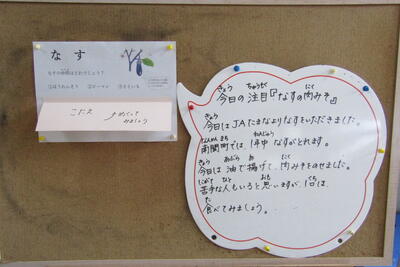 なす
なすの仲間はどれでしょう？
①ほうれんそう ②ピーマン ③さといも
こたえ
めくって
みましょう
きょう ちゅうもく にく
今日の注目『なすの肉みそ』
きょう
今日はJAたまなよりなすをいただきました。
なんかんまち ねんじゅう
南関町では、1年中なすがとれます。
きょう あぶら あ にく
今日は油で揚げて、肉みそをのせました。
にがて ひと おも くち
苦手な人もいると思いますが、1口は、
た
食べてみましょう。